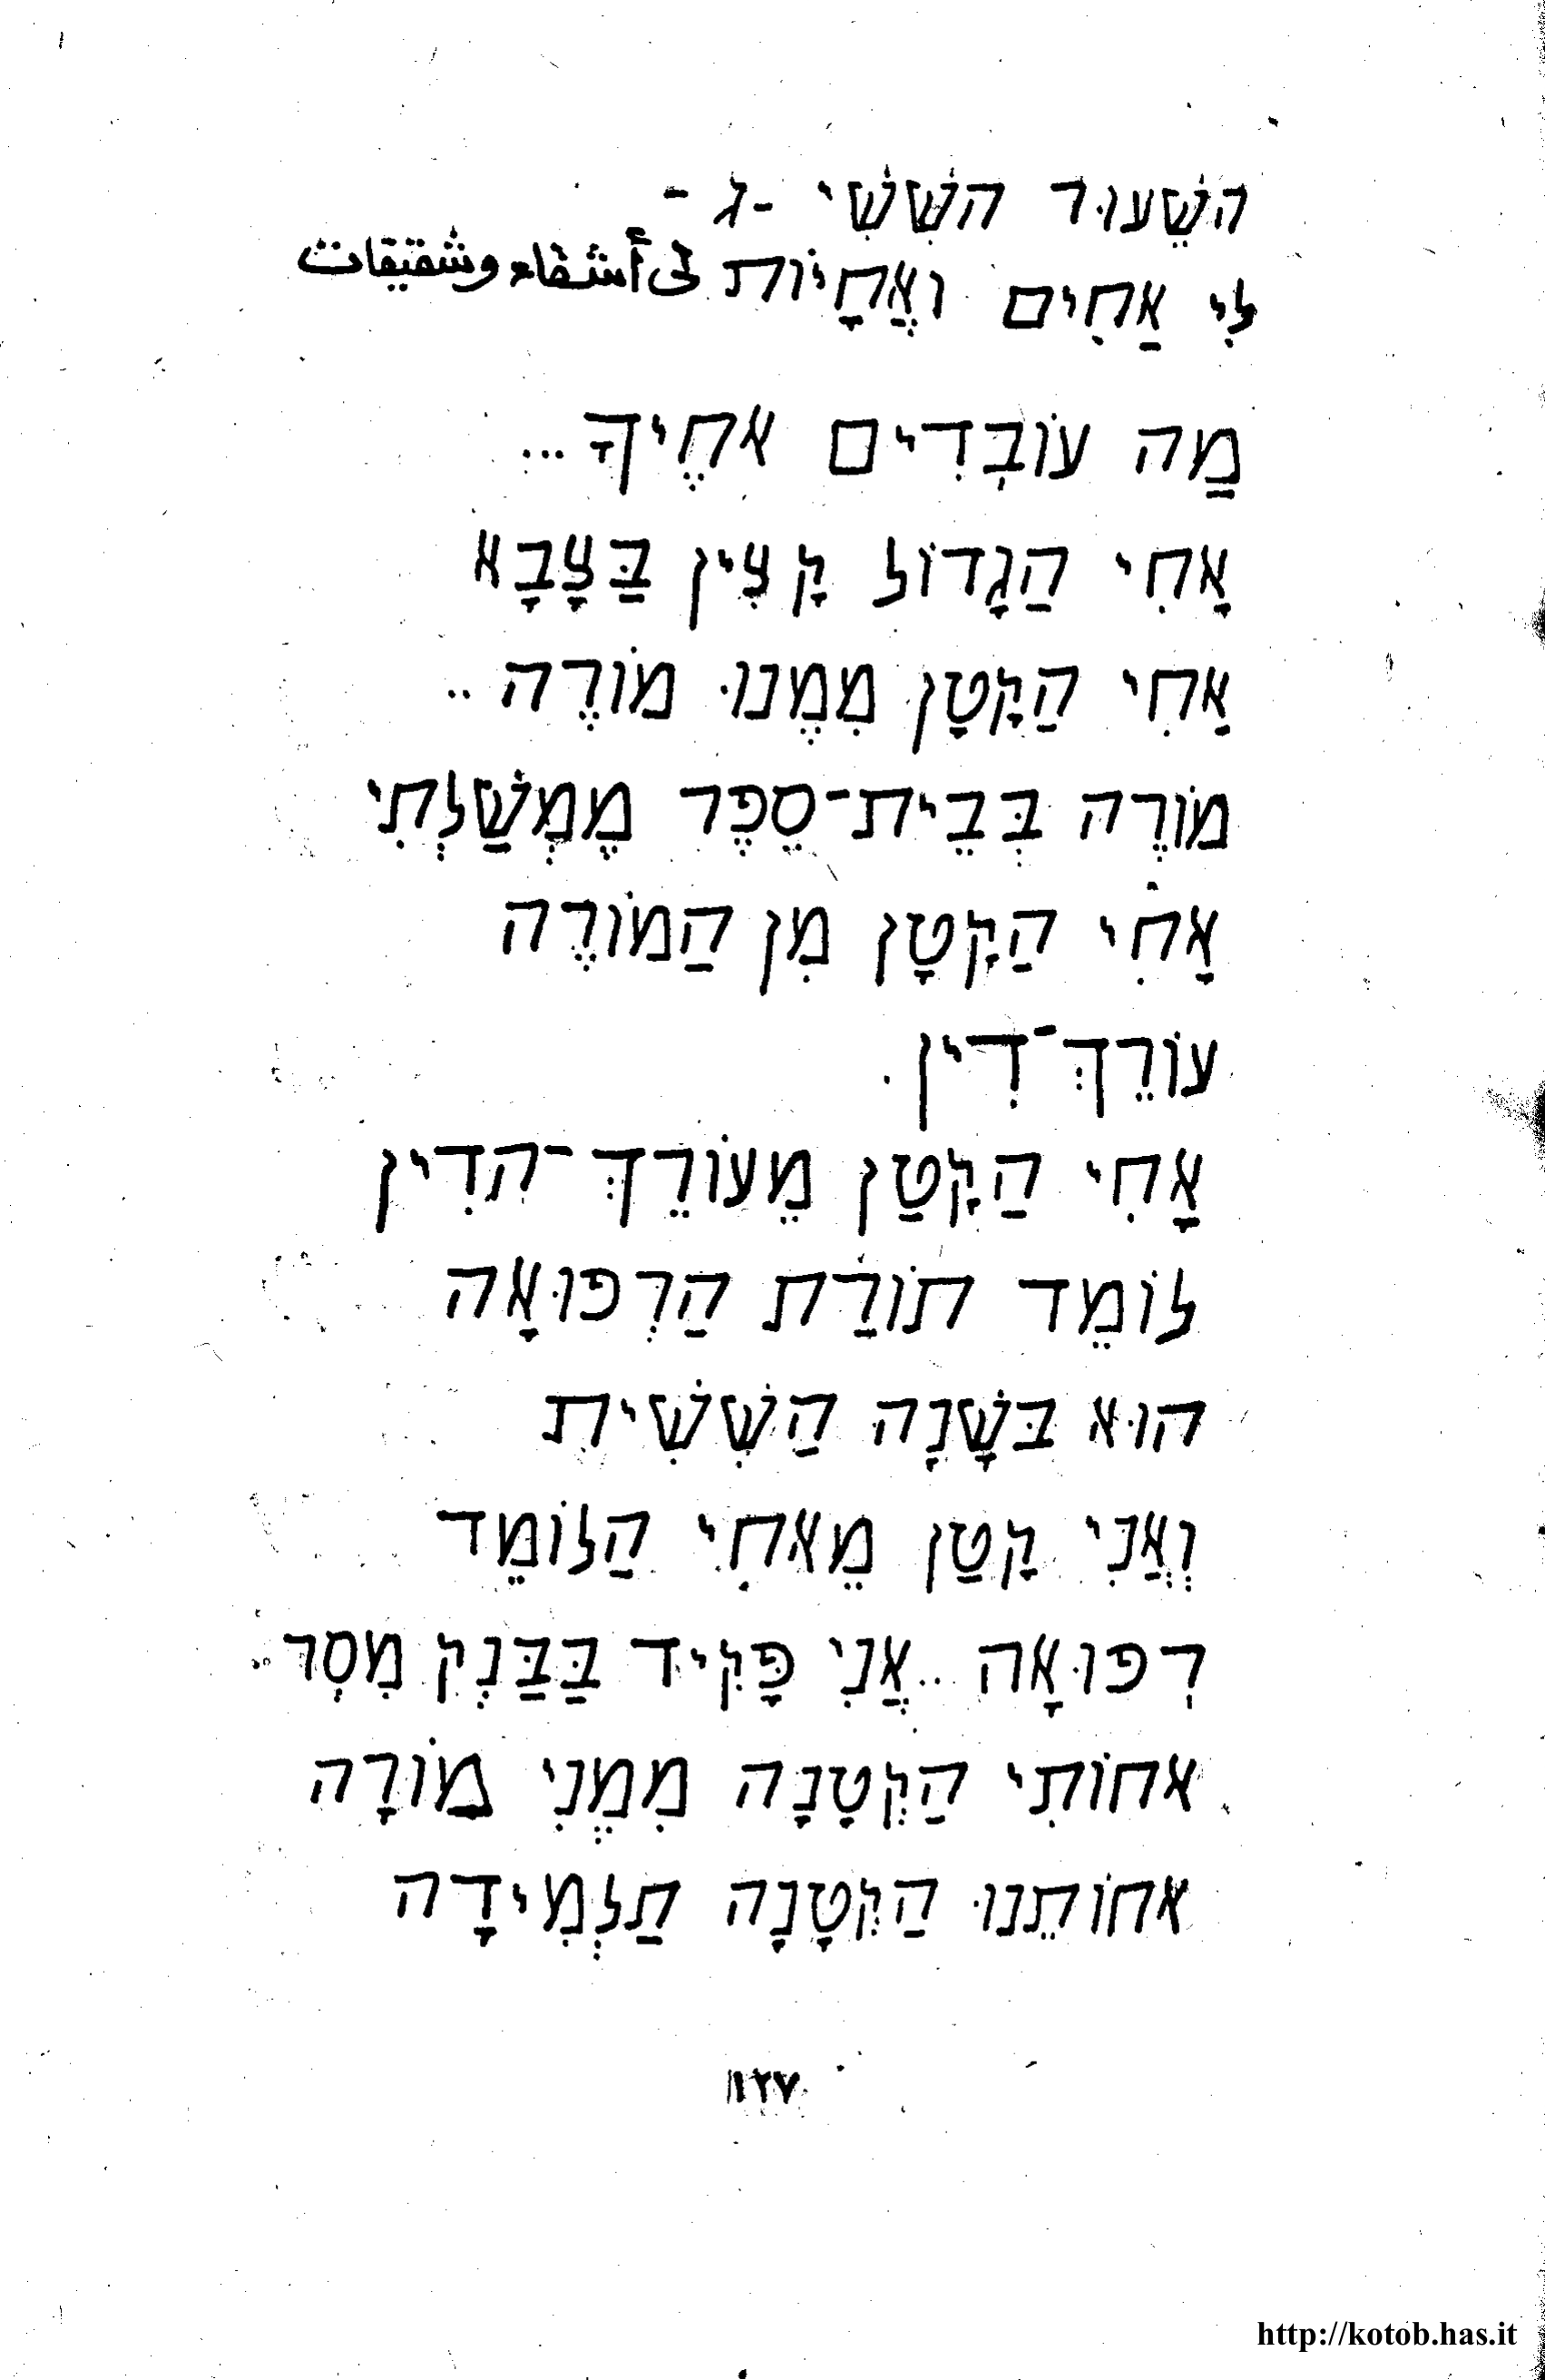 השֵׁעוּר השִּׁשִׁי -ג-
לִי אַחִים ואֲחָיוֹת لى أشقاء وشقيقات
מַה עוֹבְדִים אחֶיךָ...
אָחִי הַגָדוֹל קָצִין בַּצָבָא
אַחִי הַקָטָן מִמֶנוּ מוֹרֶה..
מוֹרֶה בְּבֵית-סֵפֶר מֶמְשַׁלְתִי
אָחִי הַקָטָן מִן הַמוֹרֶה
עוֹרֵךְ-דִין.
אָחִי הַקָטַן מֵעוֹרֵךְ-הדִין
לוֹמֵד תוֹרַת הַרְפוּאָה
הוּא בּשָׁנָה הַשִׁשִׁית
וְאֲנִי קָטַן מֵאחִי הַלוֹמֵד
רְפוּאָה..אֲנִי פָּקִיד בַּבַּנְק מִסְר..
אחוֹתִי הַקְטָנָה מִמֶנִי מוֹרָה
אחוֹתֵנוּ הַקְטָנָה תַלְמִידָה
١٢٧
http://kotob.has.it